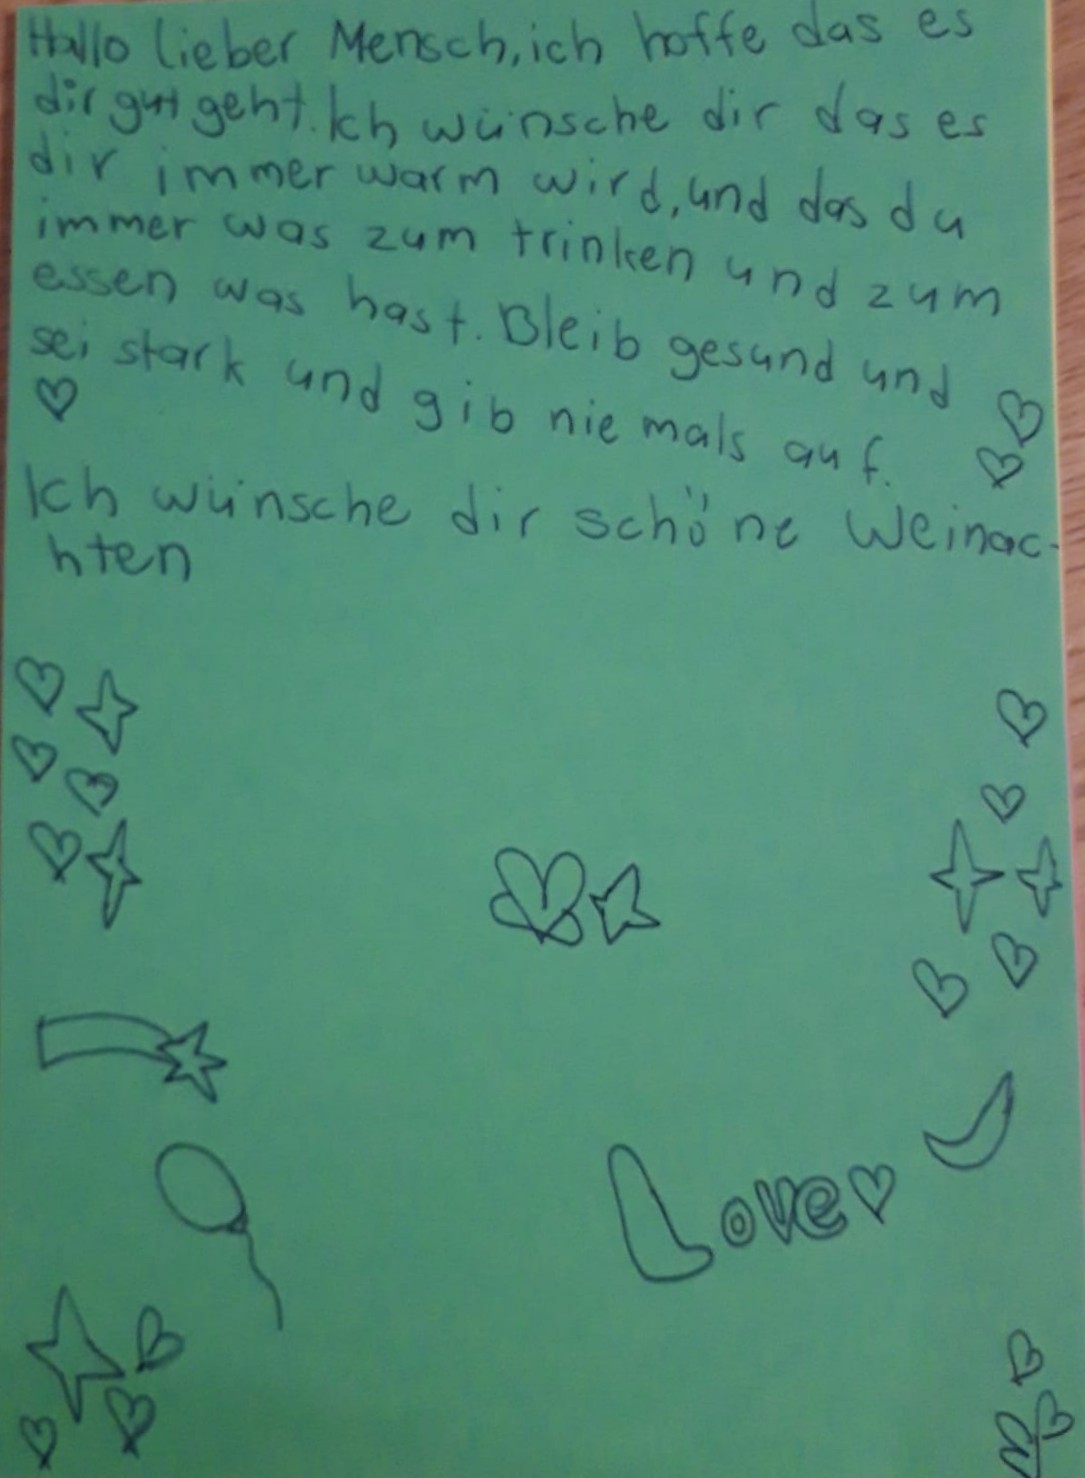 Hallo lieber Mensch, ich hoffe das es
dir gut geht. Ich wünsche dir das es
dir immer warm wird, und das du
immer was zum trinken und zum
essen was hast. Bleib gesund und
sei stark und gib niemals auf.
Ich wünsche dir schöne Weinac-
hten
Love